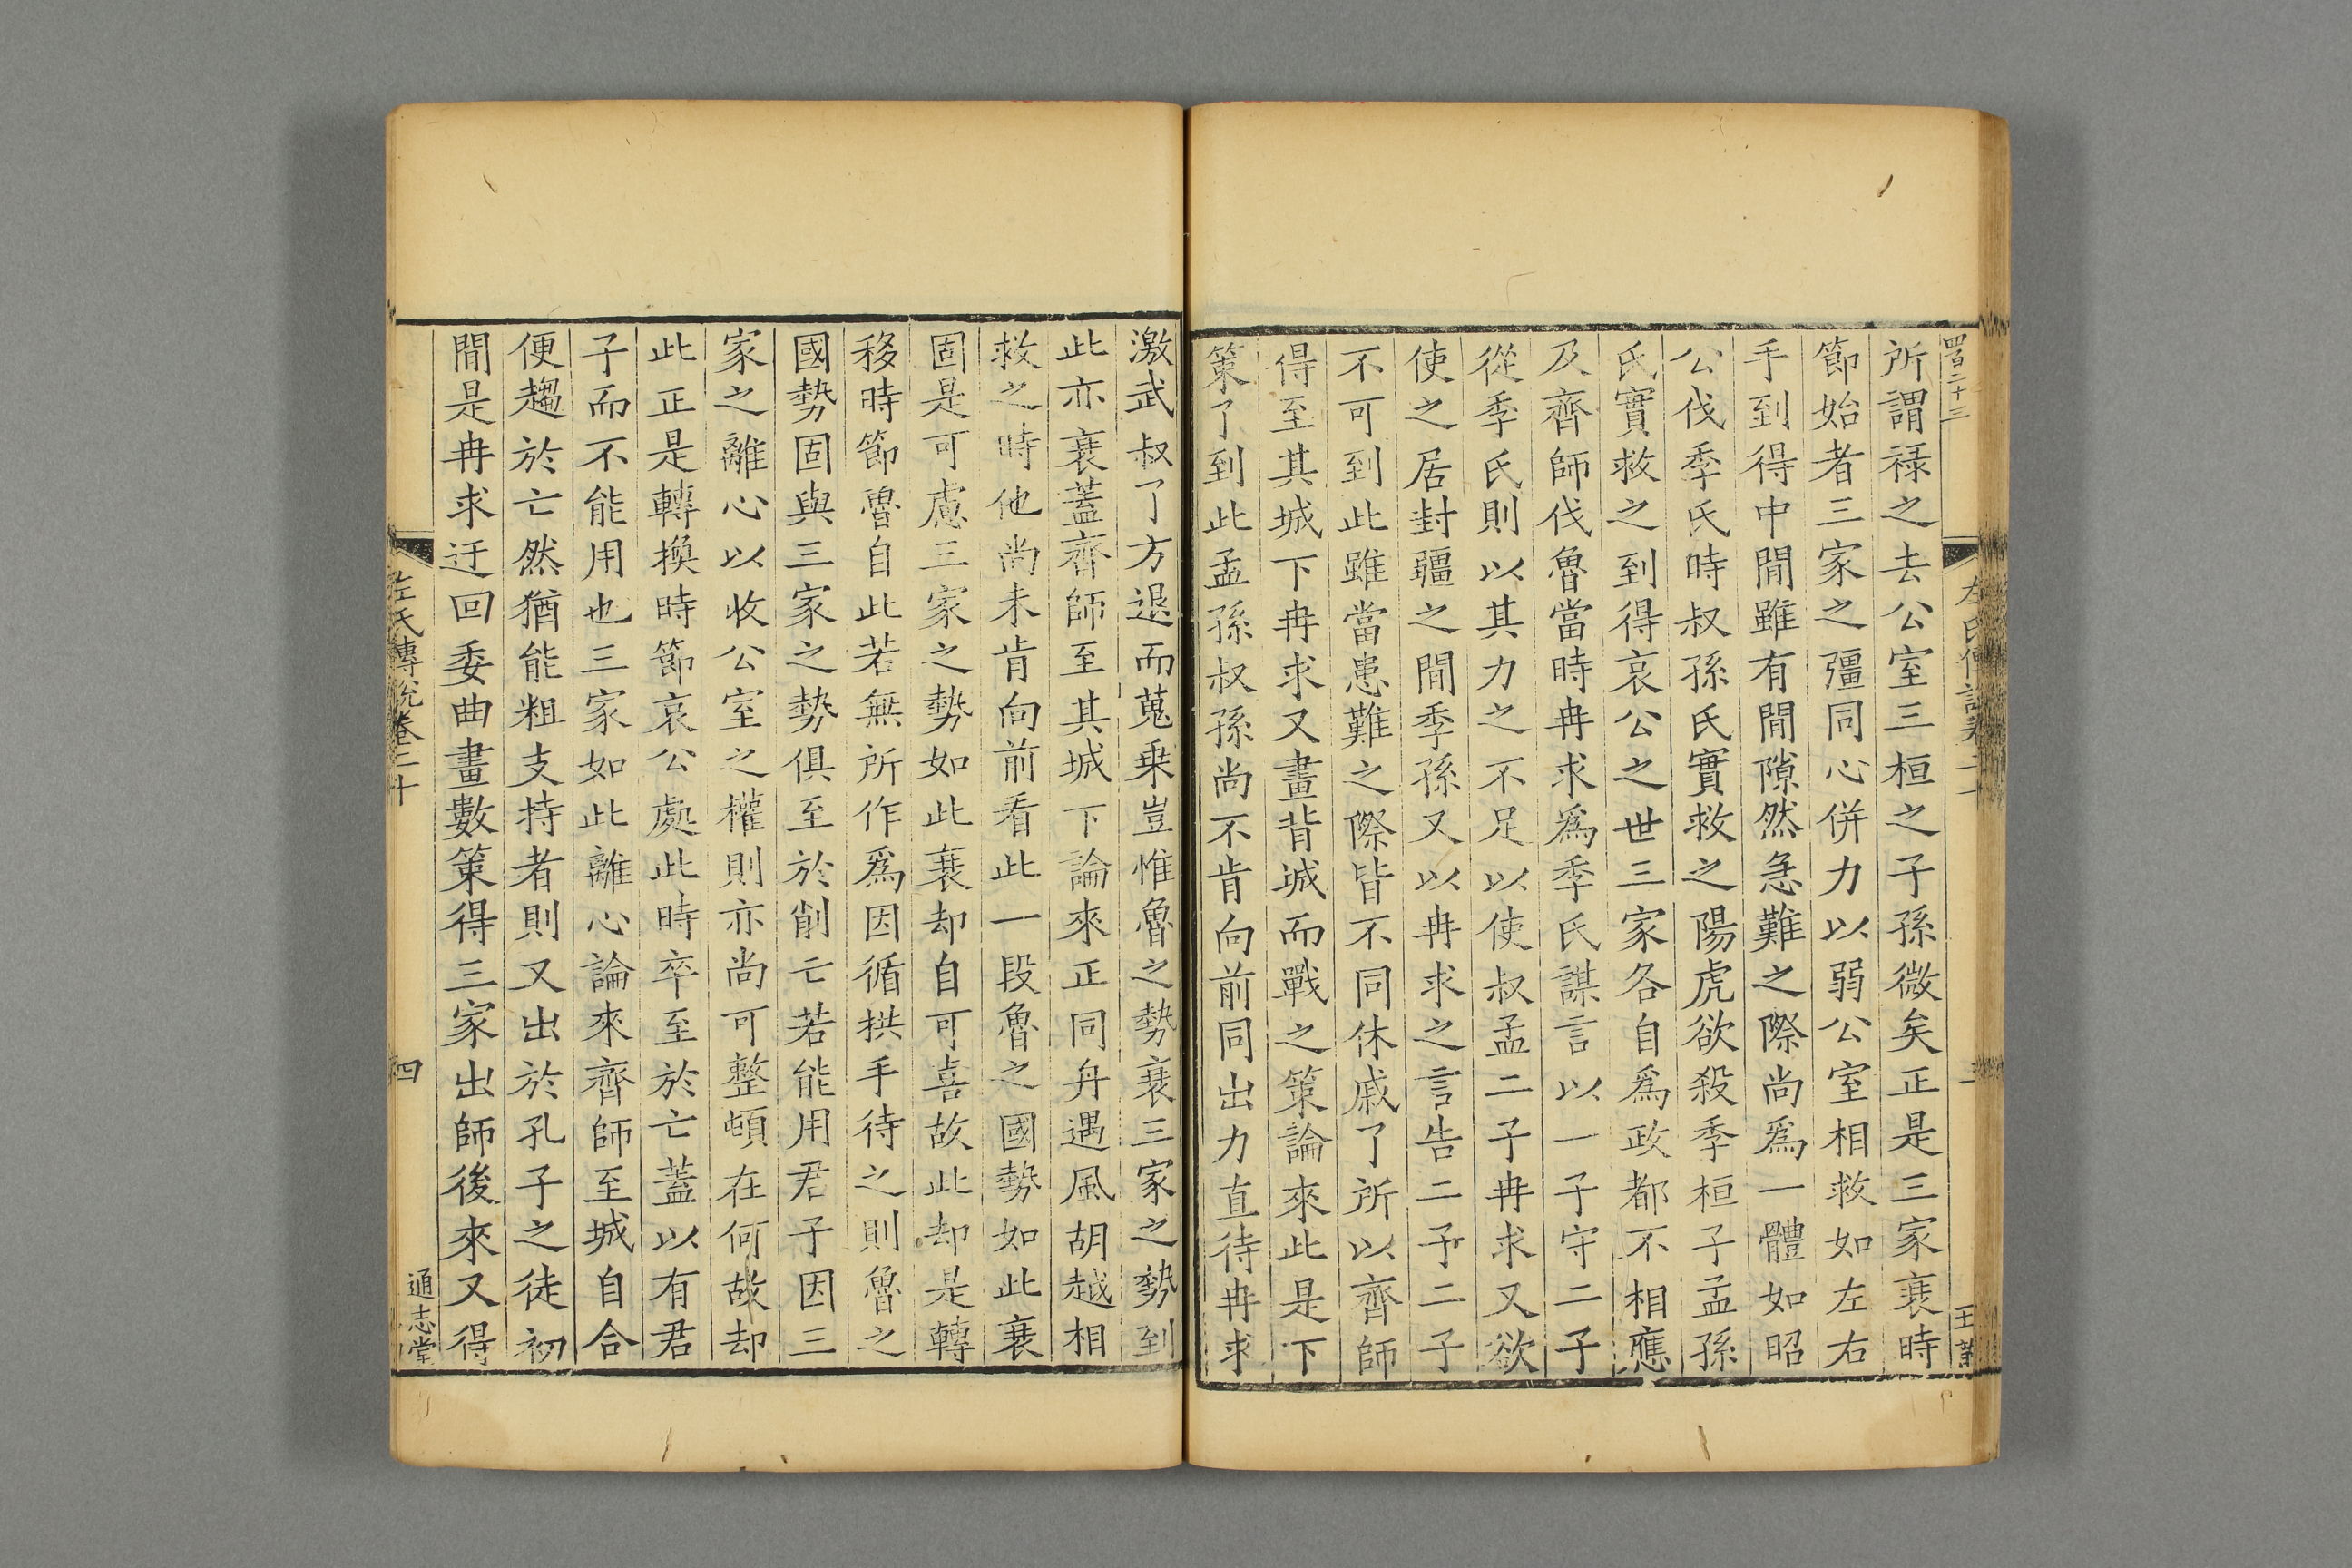 四百二十三
左氏傳說卷二十
三
王業
所謂祿之去公室三桓之子孫微矣正是三家衰時
節始者三家之彊同心併力以弱公室相救如左右
手到得中閒雖有閒隙然急難之際尚爲一體如昭
公伐季氏時叔孫氏實救之陽虎欲殺季桓子孟孫
氏實救之到得哀公之世三家各自爲政都不相應
及齊師伐魯當時冉求爲季氏謀言以一子守二子
從季氏則以其力之不足以使叔孟二子冉求又欲
使之居封疆之閒季孫又以冉求之言告二子二子
不可到此雖當患難之際皆不同休戚了所以齊師
得至其城下冉求又畫背城而戰之策論來此是下
策了到此孟孫叔孫尚不肯向前同出力直待冉求
激武叔了方退而蒐乗豈惟魯之勢衰三家之勢到
此亦衰蓋齊師至其城下論來正同舟遇風胡越相
救之時他尚未肯向前看此一段魯之國勢如此衰
固是可慮三家之勢如此衰却自可喜故此却是轉
移時節魯自此若無所作爲因循拱手待之則魯之
國勢固與三家之勢俱至於削亡若能用君子因三
家之離心以收公室之權則亦尚可整頓在何故却
此正是轉換時節哀公處此時卒至於亡蓋以有君
子而不能用也三家如此離心論來齊師至城自合
便趨於亡然猶能粗支持者則又出於孔子之徒初
閒是冉求迂回委曲畫數策得三家出師後來又得
左氏傳說卷二十
四
通志堂